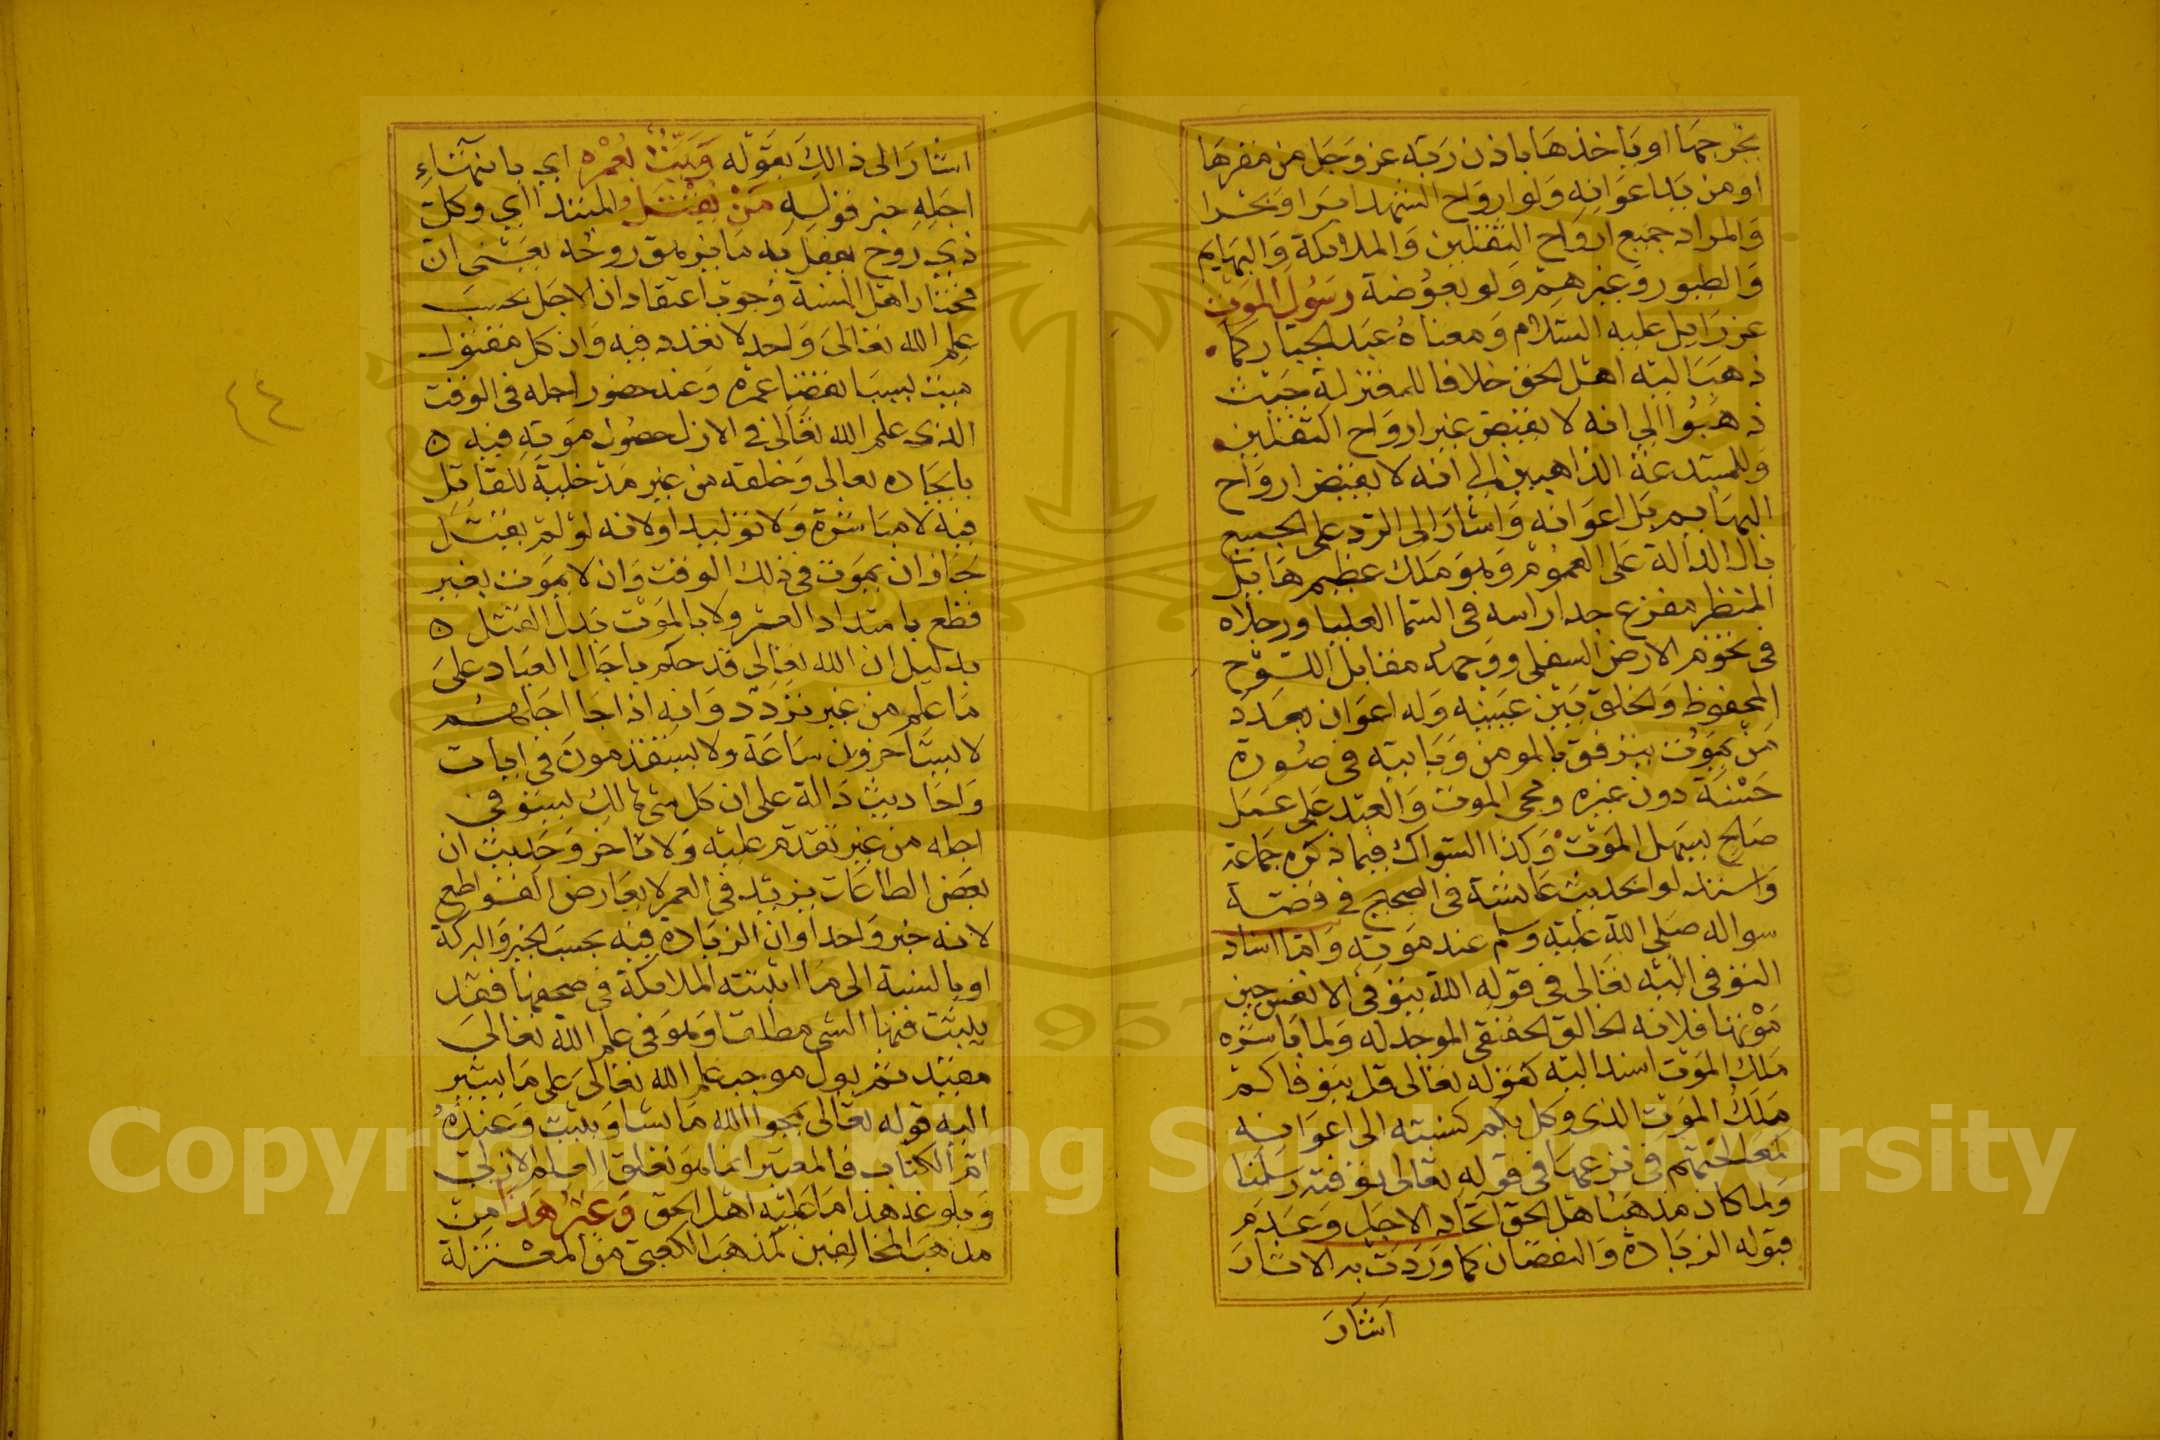 يخرجها او ياخذها باذن ربه عز وجل من مقرها
او من يد اعوانه ولو ارواح الشهدا برا وبحرا
والمراد جميع ارواح الثقلين والملائكة والبهايم
والطيور وغيرهم ولو بعوضة رسول الموت
عزرايل عليه السلام ومعناه عبد الجبار كما
ذهب اليه اهل الحق خلافا للمعتزلة حيث
ذهبوا الى انه لا يقبض غير ارواح الثقلين
وللمبتدعة الذاهبين الى انه لا يقبض ارواح
البهايم بل اعوانه واشار الى الرد على الجميع
بال الدالة على العموم وهو ملك عظيم هايل
المنظر مفزع جدا راسه في السما العليا ورجلاه
في تخوم الارض السفلى ووجهه مقابل اللوح
المحفوظ والخلق بين عينيه وله اعوان بعدد
من يموت يترفق بالمومن وياتيه في صورة
حسنة دون غيره ومجى الموت والعبد على عمل
صالح يسهل الموت وكذا السواك فيما ذكره جماعة
واستدلوا بحديث عايشة في الصحيح في قصة
سواكه صلى الله عليه وسلم عند موته واما اسناد
التوفى اليه تعالى في قوله الله يتوفى الانفس حين
موتها فلانه الخالق الحقيقى الموجد له ولما باشره
ملك الموت اسند اليه كقوله تعالى قل يتوفاكم
ملك الموت الذى وكل بكم كنسبته الى اعوانه
لمعالجتهم في نزعها في قوله تعالى توفته رسلنا
ولما كان مذهب اهل الحق اتحاد الاجل وعدم
قبوله الزيادة والنقصان كما وردت به الاثار
اشار
اشار الى ذالك بقوله وميت بعمره اي بانتهاء
اجله خبر قوله من يقتل والمبتدا اي وكل
ذي روح يفعل به ما يزهق روحه يعنى ان
مختار اهل السنة وجوب اعتقاد ان الاجل بحسب
علم الله تعالى واحد لا تعدد فيه وان كل مقتول
ميت بسبب انقضا عمره وعند حضور اجله في الوقت
الذى علم الله تعالى في الازل حصول موته فيه ه
بايجاده تعالى وخلقه من غير مدخلية للقاتل
فيه لا مباشرة ولا توليدا ولانه لو لم يقتل
جاز ان يموت في ذلك الوقت وان لا يموت بغير
قطع بامتداد العمر ولا بالموت بدل القتل ه
بدليل ان الله تعالى قد حكم باجال العباد على
ما علم من غير تردد وانه اذا جا اجلهم
لا يستاخرون ساعة ولا يستقدمون في ايات
واحاديث دالة على ان كل هالك يستوفى
اجله من غير تقدم عليه ولا تاخر وحديث ان
بعض الطاعات يزيد في العمر لا يعارض القواطع
لانه خبر واحد او ان الزيادة فيه بحسب الخير والبركة
او بالنسبة الى ما اثبتته الملائكة في صحفها فقد
يثبت فيها الشى مطلقا وهو في علم الله تعالى
مقيد ثم يول موجب علم الله تعالى على ما يشير
اليه قوله تعالى يمحوا الله ما يشا ويثبت وعنده
ام الكتاب فالمعتبر انما هو تعلق العلم الازلى
وبلوغه هذا ما عليه اهل الحق وغير هذا من
مذهب المخالفين كمذهب الكعبى من المعتزلة
٤٤
Copyright © King Saud University
1957